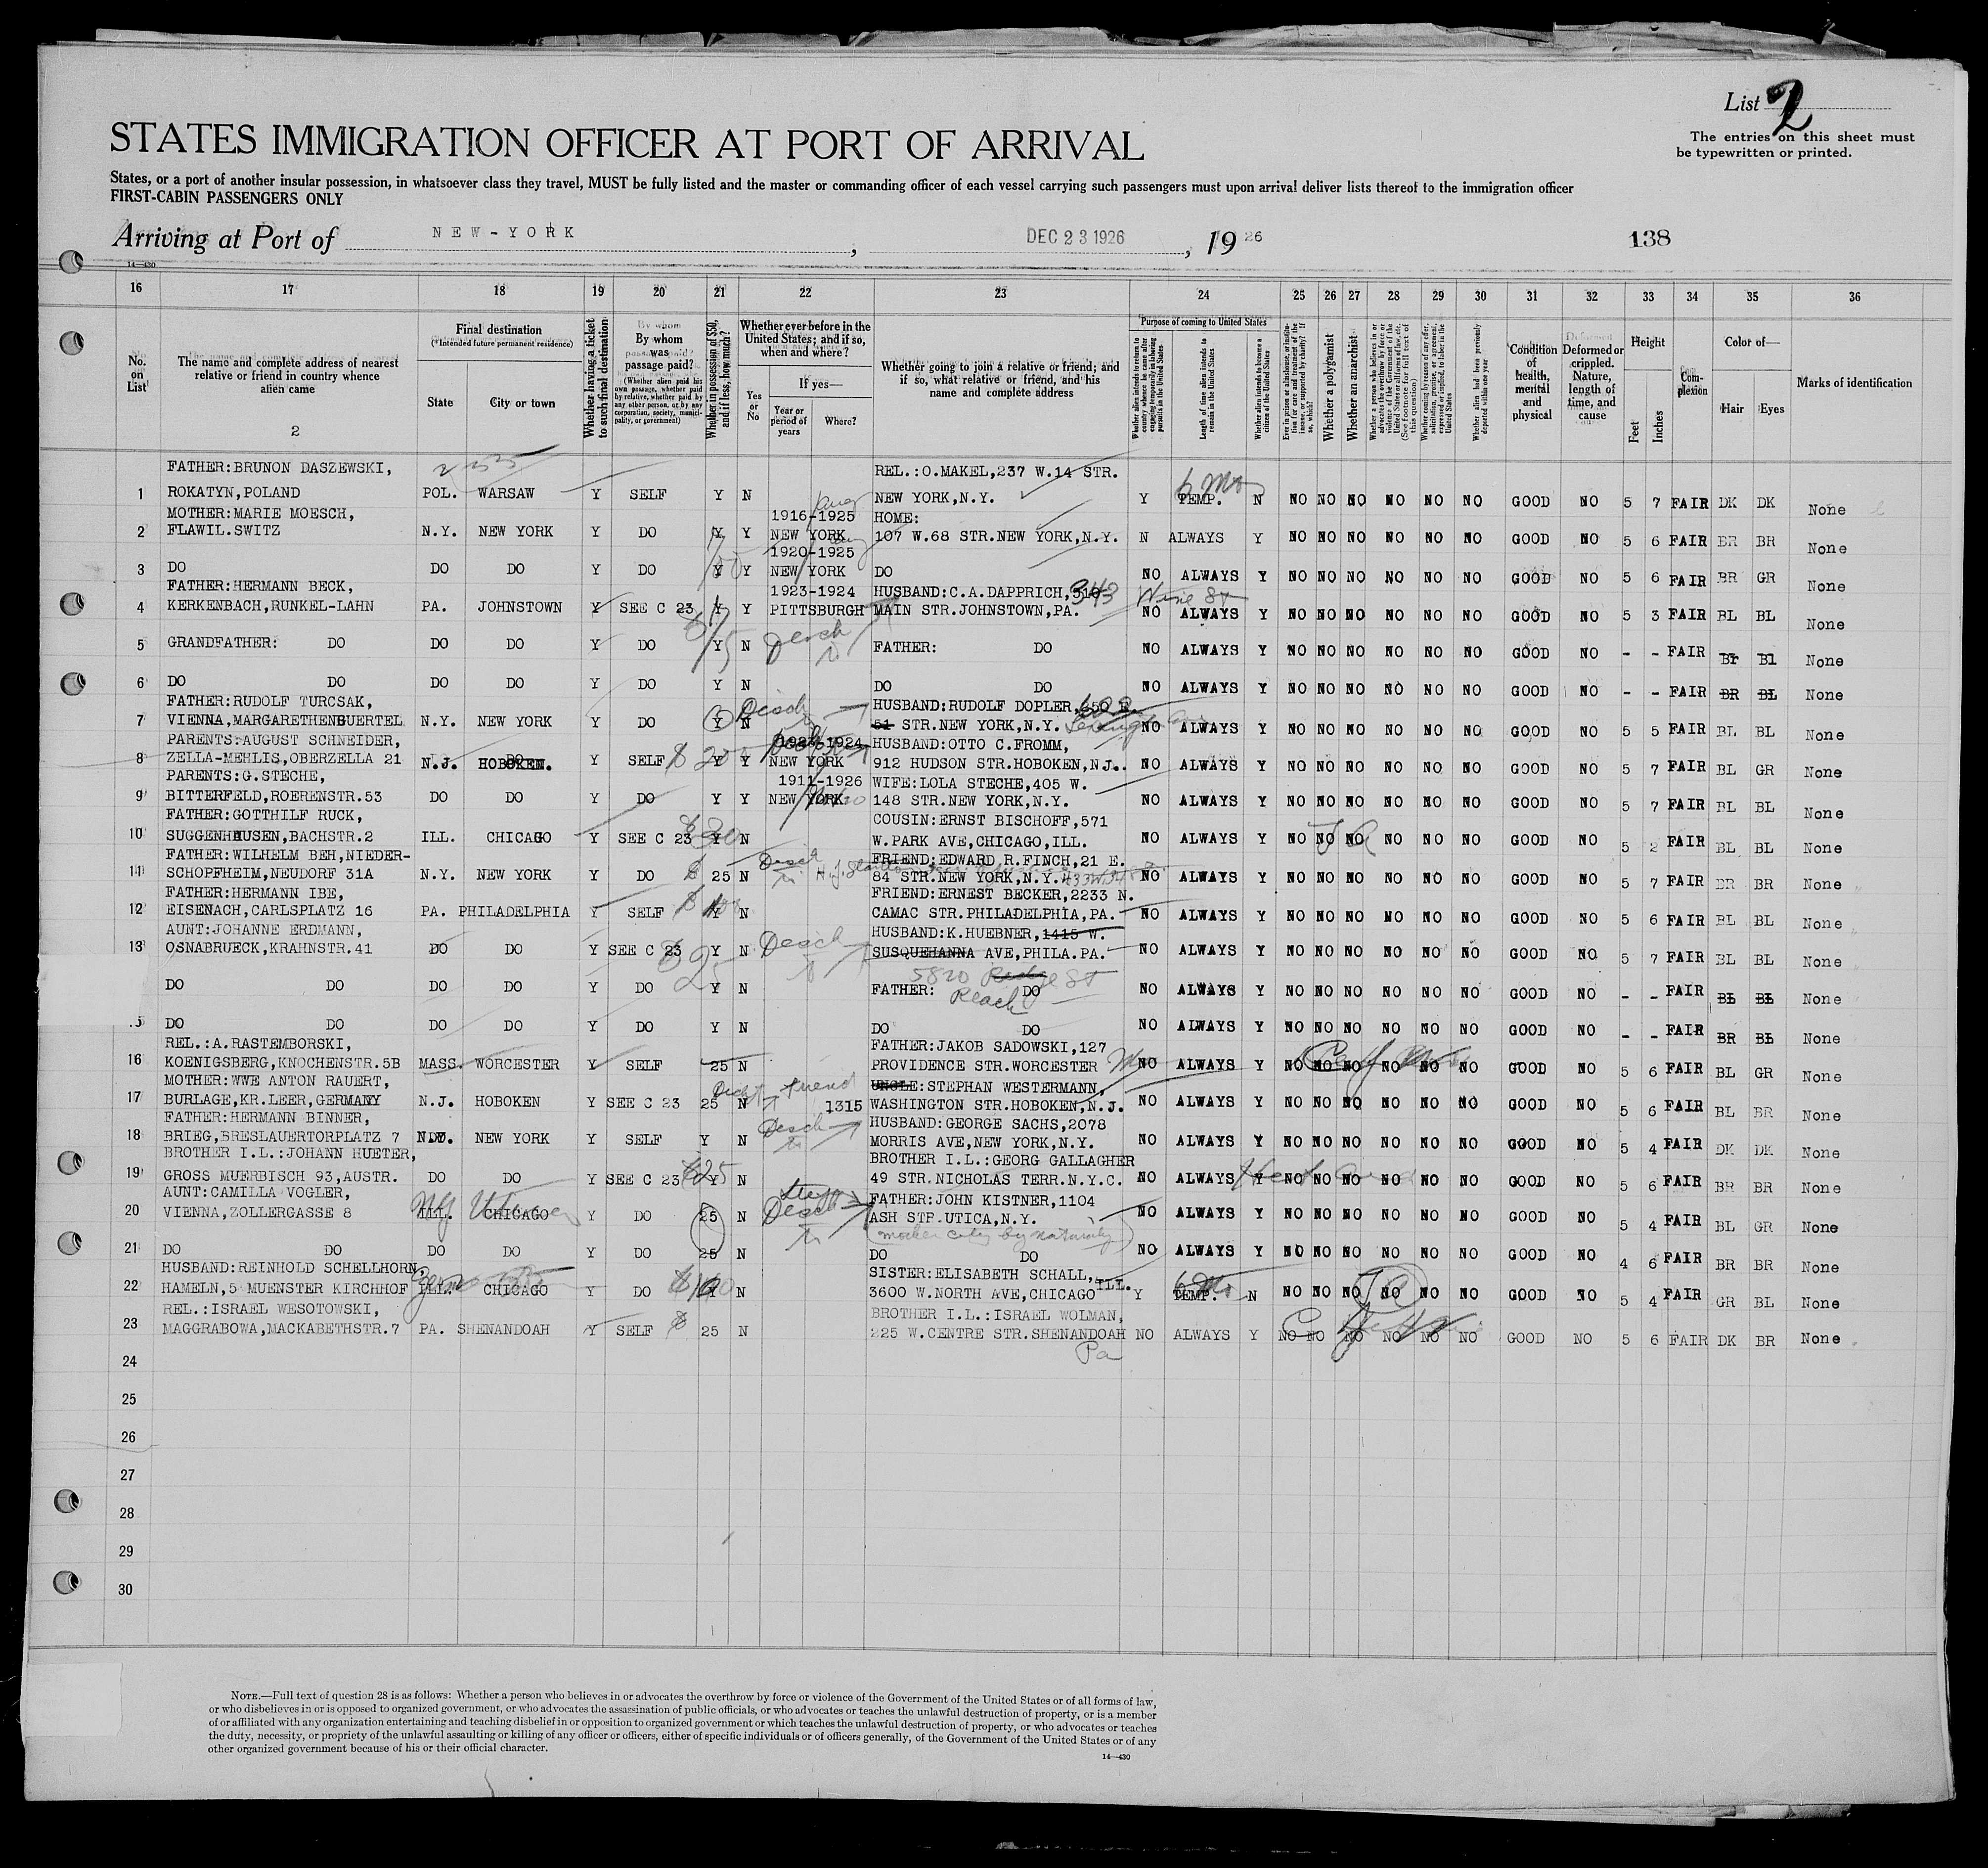 List 2
The entries on this sheet must
be typewritten or printed.
STATES IMMIGRATION OFFICER AT PORT OF ARRIVAL
States, or a port of another insular possession, in whatsoever class they travel, MUST be fully listed and the master or commanding officer of each vessel carrying such passengers must upon arrival deliver lists thereof to the immigration officer
FIRST-CABIN PASSENGERS ONLY
Arriving at Port of NEW-YORK, DEC 23 1926, 19 26 138
14-430
16 17 18 19 20 21 22 23 24 25 26 27 28 29 30 31 32 33 34 35 36
No. on List
The name and complete address of nearest relative or friend in country whence alien came
2
Final destination
(*Intended future permanent residence)
State City or town
Whether having a ticket to such final destination
By whom was passage paid?
(Whether alien paid his own passage, whether paid by relative, whether paid by any other person, or by any corporation, society, municipality, or government)
Whether in possession of $50, and if less, how much?
Whether ever before in the United States; and if so, when and where?
Yes or No
If yes—
Year or period of years Where?
Whether going to join a relative or friend; and if so, what relative or friend, and his name and complete address
Purpose of coming to United States
Length of time alien intends to remain in the United States
Whether alien intends to become a citizen of the United States
Whether a polygamist
Whether an anarchist
Condition of health, mental and physical
Deformed or crippled. Nature, length of time, and cause
Height
Feet Inches
Complexion
Color of—
Hair Eyes
Marks of identification
FATHER:BRUNON DASZEWSKI, REL.:O.MAKEL,237 W.14 STR.
1 ROKATYN,POLAND POL. WARSAW Y SELF Y N NEW YORK,N.Y. Y TEMP. 6 Mo N NO NO NO NO NO NO GOOD NO 5 7 FAIR DK DK None
MOTHER:MARIE MOESCH, 1916-1925 HOME:
2 FLAWIL.SWITZ N.Y. NEW YORK Y DO Y Y NEW YORK 107 W.68 STR.NEW YORK,N.Y. N ALWAYS Y NO NO NO NO NO NO GOOD NO 5 6 FAIR BR BR None
1920-1925
3 DO DO DO Y DO Y Y NEW YORK DO NO ALWAYS Y NO NO NO NO NO NO GOOD NO 5 6 FAIR BR GR None
FATHER:HERMANN BECK, 1923-1924 HUSBAND:C.A.DAPPRICH, 343
4 KERKENBACH,RUNKEL-LAHN PA. JOHNSTOWN Y SEE C 23 Y Y PITTSBURGH MAIN STR.JOHNSTOWN,PA. NO ALWAYS Y NO NO NO NO NO NO GOOD NO 5 3 FAIR BL BL None
5 GRANDFATHER: DO DO DO Y DO Y N FATHER: DO NO ALWAYS Y NO NO NO NO NO NO GOOD NO - - FAIR Br Bl None
6 DO DO DO DO Y DO Y N DO DO NO ALWAYS Y NO NO NO NO NO NO GOOD NO - - FAIR BR BL None
FATHER:RUDOLF TURCSAK, HUSBAND:RUDOLF DOPLER,
7 VIENNA,MARGARETHENGUERTEL N.Y. NEW YORK Y DO Y N 51 STR.NEW YORK,N.Y. NO ALWAYS Y NO NO NO NO NO NO GOOD NO 5 5 FAIR BL BL None
PARENTS:AUGUST SCHNEIDER, HUSBAND:OTTO C.FROMM,
8 ZELLA-MEHLIS,OBERZELLA 21 N.J. HOBOKEN. Y SELF Y Y NEW YORK 912 HUDSON STR.HOBOKEN,N.J.. NO ALWAYS Y NO NO NO NO NO NO GOOD NO 5 7 FAIR BL GR None
PARENTS:G.STECHE, 1911-1926 WIFE:LOLA STECHE,405 W.
9 BITTERFELD,ROERENSTR.53 DO DO Y DO Y Y NEW YORK 148 STR.NEW YORK,N.Y. NO ALWAYS Y NO NO NO NO NO NO GOOD NO 5 7 FAIR BL BL None
FATHER:GOTTHILF RUCK, COUSIN:ERNST BISCHOFF,571
10 SUGGENHAUSEN,BACHSTR.2 ILL. CHICAGO Y SEE C 23 Y N W.PARK AVE,CHICAGO,ILL. NO ALWAYS Y NO NO NO NO NO NO GOOD NO 5 2 FAIR BL BL None
FATHER:WILHELM BEH,NIEDER- FRIEND:EDWARD R.FINCH,21 E.
11 SCHOPFHEIM,NEUDORF 31A N.Y. NEW YORK Y DO $ 25 N 84 STR.NEW YORK,N.Y. NO ALWAYS Y NO NO NO NO NO NO GOOD NO 5 7 FAIR BR BR None
FATHER:HERMANN IBE, FRIEND:ERNEST BECKER,2233 N.
12 EISENACH,CARLSPLATZ 16 PA. PHILADELPHIA Y SELF Y N CAMAC STR.PHILADELPHIA,PA. NO ALWAYS Y NO NO NO NO NO NO GOOD NO 5 6 FAIR BL BL None
AUNT:JOHANNE ERDMANN, HUSBAND:K.HUEBNER,1415 W.
13 OSNABRUECK,KRAHNSTR.41 DO DO Y SEE C 23 Y N SUSQUEHANNA AVE,PHILA.PA. NO ALWAYS Y NO NO NO NO NO NO GOOD NO 5 7 FAIR BL BL None
5820 Reach St
DO DO DO DO Y DO Y N FATHER: DO NO ALWAYS Y NO NO NO NO NO NO GOOD NO - - FAIR BL BL None
5 DO DO DO DO Y DO Y N DO DO NO ALWAYS Y NO NO NO NO NO NO GOOD NO - - FAIR BR BL None
REL.:A.RASTEMBORSKI, FATHER:JAKOB SADOWSKI,127
16 KOENIGSBERG,KNOCHENSTR.5B MASS. WORCESTER Y SELF 25 N PROVIDENCE STR.WORCESTER NO ALWAYS Y NO NO NO NO NO NO GOOD NO 5 6 FAIR BL GR None
MOTHER:WWE ANTON RAUERT, friend UNCLE:STEPHAN WESTERMANN,
17 BURLAGE,KR.LEER,GERMANY N.J. HOBOKEN Y SEE C 23 25 N 1315 WASHINGTON STR.HOBOKEN,N.J. NO ALWAYS Y NO NO NO NO NO NO GOOD NO 5 6 FAIR BL BR None
FATHER:HERMANN BINNER, HUSBAND:GEORGE SACHS,2078
18 BRIEG,BRESLAUERTORPLATZ 7 NEW YORK Y SELF Y N MORRIS AVE,NEW YORK,N.Y. NO ALWAYS Y NO NO NO NO NO NO GOOD NO 5 4 FAIR DK DK None
BROTHER I.L.:JOHANN HUETER, BROTHER I.L.:GEORG GALLAGHER
19 GROSS MUERBISCH 93,AUSTR. DO DO Y SEE C 23 Y N 49 STR.NICHOLAS TERR.N.Y.C. NO ALWAYS Y NO NO NO NO NO NO GOOD NO 5 6 FAIR BR BR None
AUNT:CAMILLA VOGLER, FATHER:JOHN KISTNER,1104
20 VIENNA,ZOLLERGASSE 8 ILL. CHICAGO Y DO 25 N ASH STR.UTICA,N.Y. NO ALWAYS Y NO NO NO NO NO NO GOOD NO 5 4 FAIR BL GR None
21 DO DO DO DO Y DO 25 N DO DO NO ALWAYS Y NO NO NO NO NO NO GOOD NO 4 6 FAIR BR BR None
HUSBAND:REINHOLD SCHELLHORN, SISTER:ELISABETH SCHALL,
22 HAMELN,5 MUENSTER KIRCHHOF ILL. CHICAGO Y DO Y N 3600 W.NORTH AVE,CHICAGO ILL. Y TEMP. 6 Mo N NO NO NO NO NO NO GOOD NO 5 4 FAIR GR BL None
REL.:ISRAEL WESOTOWSKI, BROTHER I.L.:ISRAEL WOLMAN,
23 MAGGRABOWA,MACKABETHSTR.7 PA. SHENANDOAH Y SELF $ 25 N 225 W.CENTRE STR.SHENANDOAH NO ALWAYS Y NO NO NO NO NO NO GOOD NO 5 6 FAIR DK BR None
Pa
24
25
26
27
28
29
30
NOTE.—Full text of question 28 is as follows: Whether a person who believes in or advocates the overthrow by force or violence of the Government of the United States or of all forms of law,
or who disbelieves in or is opposed to organized government, or who advocates the assassination of public officials, or who advocates or teaches the unlawful destruction of property, or is a member
of or affiliated with any organization entertaining and teaching disbelief in or opposition to organized government or which teaches the unlawful destruction of property, or who advocates or teaches
the duty, necessity, or propriety of the unlawful assaulting or killing of any officer or officers, either of specific individuals or of officers generally, of the Government of the United States or of any
other organized government because of his or their official character.
14-430